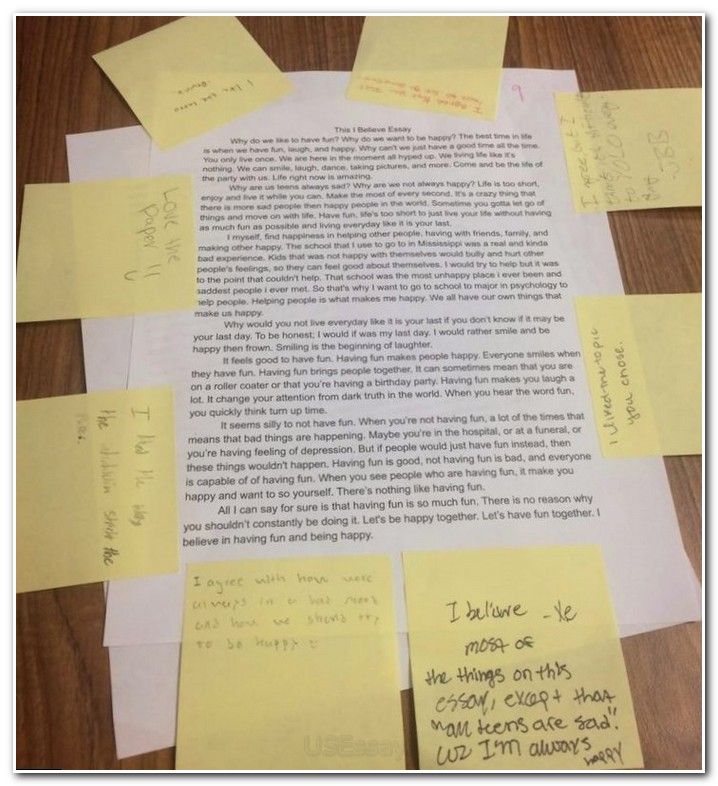 This I Believe Essay
Why do we like to have fun? Why do we want to be happy? The best time in life
is when we have fun, laugh, and happy. Why can't we just have a good time all the time.
You only live once. We are here in the moment all hyped up. We living life like it's
nothing. We can smile, laugh, dance, taking pictures, and more. Come and be the life of
the party with us. Life right now is amazing.
Why are us teens always sad? Why are we not always happy? Life is too short,
enjoy and live it while you can. Make the most of every second. It's a crazy thing that
there is more sad people then happy people in the world. Sometime you gotta let go of
things and move on with life. Have fun, life's too short to just live your life without having
as much fun as possible and living everyday like it is your last.
I myself, find happiness in helping other people, having with friends, family, and
making other happy. The school that I use to go to in Mississippi was a real and kinda
bad experience. Kids that was not happy with themselves would bully and hurt other
people's feelings, so they can feel good about themselves. I would try to help but it was
to the point that couldn't help. That school was the most unhappy place i ever been and
saddest people i ever met. So that's why I want to go to school to major in psychology to
help people. Helping people is what makes me happy. We all have our own things that
make us happy.
Why would you not live everyday like it is your last if you don't know if it may be
your last day. To be honest, I would if was my last day. I would rather smile and be
happy then frown. Smiling is the beginning of laughter.
It feels good to have fun. Having fun makes people happy. Everyone smiles when
they have fun. Having fun brings people together. It can sometimes mean that you are
on a roller coater or that you're having a birthday party. Having fun makes you laugh a
lot. It change your attention from dark truth in the world. When you hear the word fun,
you quickly think turn up time.
It seems silly to not have fun. When you're not having fun, a lot of the times that
means that bad things are happening. Maybe you're in the hospital, or at a funeral, or
you're having feeling of depression. But if people would just have fun instead, then
these things wouldn't happen. Having fun is good, not having fun is bad, and everyone
is capable of of having fun. When you see people who are having fun, it make you
happy and want to so yourself. There's nothing like having fun.
All I can say for sure is that having fun is so much fun, There is no reason why
you shouldn't constantly be doing it. Let's be happy together. Let's have fun together. I
believe in having fun and being happy.
9
I agree but I
YOLO
to
JBB
Love the
paper !!
I liked the topic
you chose.
I like the way
the
I agree with how were
always in a bad mood
and how we should try
to be happy
I believe
most of
the things on this
essay, except that
"all teens are sad."
cuz I'm always
happy
USEssay